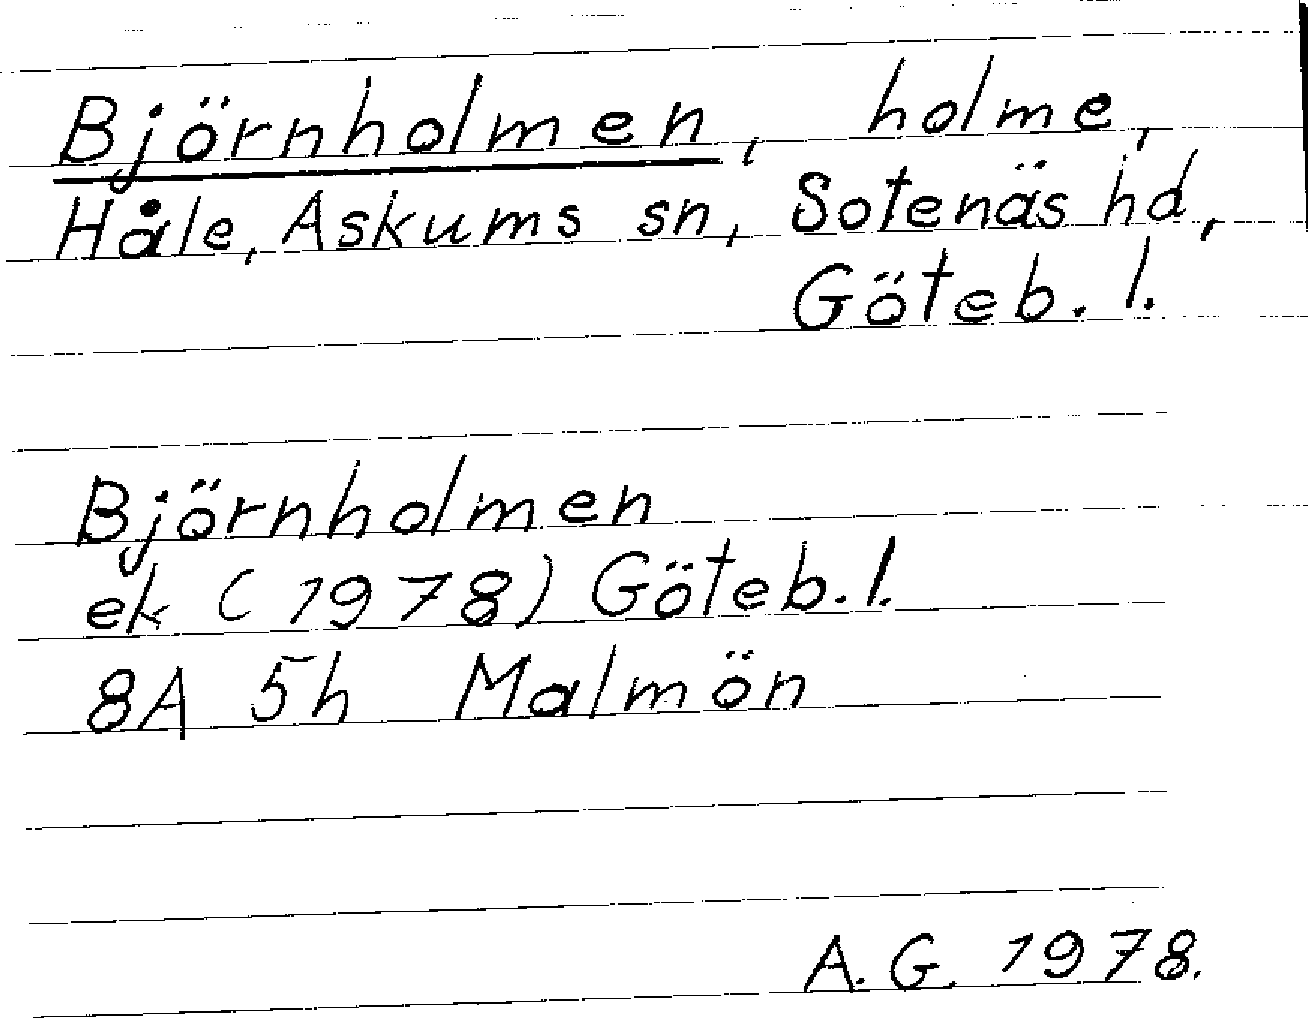 Björnholmen, holme,
Håle, Askums sn, Sotenäs hd,
Göteb. l.
Björnholmen
ek (1978) Göteb. l.
8A 5h Malmön
A.G. 1978.